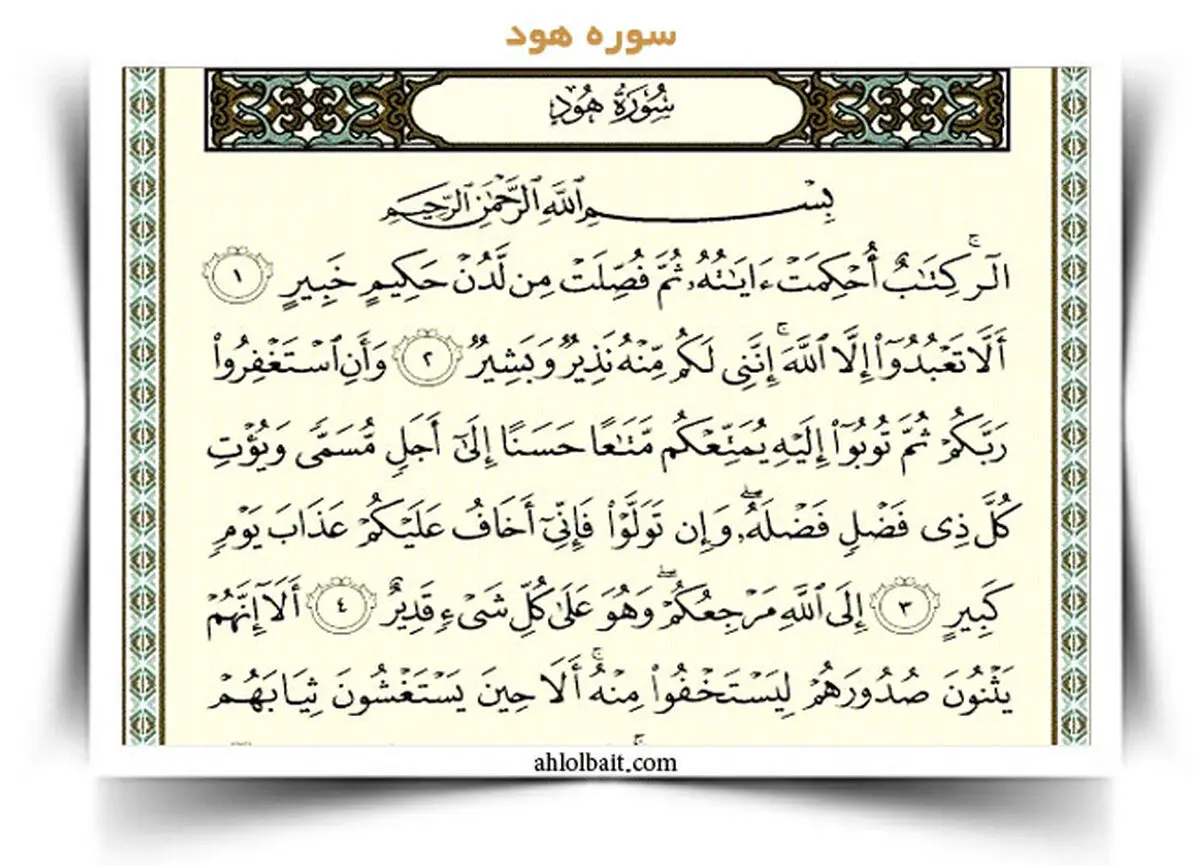 سوره هود
سُورَةُ هُودٍ
بِسْمِ ٱللَّهِ ٱلرَّحْمَٰنِ ٱلرَّحِيمِ
الٓر ۚ كِتَٰبٌ أُحْكِمَتْ ءَايَٰتُهُۥ ثُمَّ فُصِّلَتْ مِن لَّدُنْ حَكِيمٍ خَبِيرٍ ١
أَلَّا تَعْبُدُوٓا۟ إِلَّا ٱللَّهَ ۚ إِنَّنِى لَكُم مِّنْهُ نَذِيرٌ وَبَشِيرٌ ٢ وَأَنِ ٱسْتَغْفِرُوا۟
رَبَّكُمْ ثُمَّ تُوبُوٓا۟ إِلَيْهِ يُمَتِّعْكُم مَّتَٰعًا حَسَنًا إِلَىٰٓ أَجَلٍ مُّسَمًّى وَيُؤْتِ
كُلَّ ذِى فَضْلٍ فَضْلَهُۥ ۖ وَإِن تَوَلَّوْا۟ فَإِنِّىٓ أَخَافُ عَلَيْكُمْ عَذَابَ يَوْمٍ
كَبِيرٍ ٣ إِلَى ٱللَّهِ مَرْجِعُكُمْ ۖ وَهُوَ عَلَىٰ كُلِّ شَىْءٍ قَدِيرٌ ٤ أَلَآ إِنَّهُمْ
يَثْنُونَ صُدُورَهُمْ لِيَسْتَخْفُوا۟ مِنْهُ ۚ أَلَا حِينَ يَسْتَغْشُونَ ثِيَابَهُمْ
ahlolbait.com